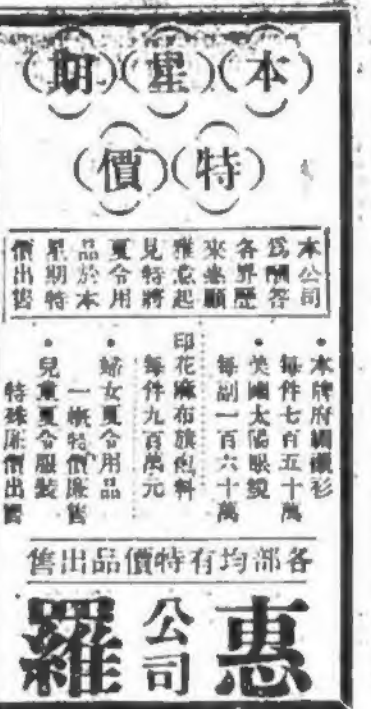 (本)(星)(期)
(特)(價)
本公司
為酬答
各界歷
來惠顧
雅意起
見特將
夏令用
品於本
星期特
價出售
•本牌府綢襯衫
每件七百五十萬
•美國太陽眼鏡
每副一百六十萬
印花麻布旗袍料
每件九百萬元
•婦女夏令用品
一概特價廉售
•兒童夏令服裝
特殊廉價出售
各部均有特價品出售
惠羅公司